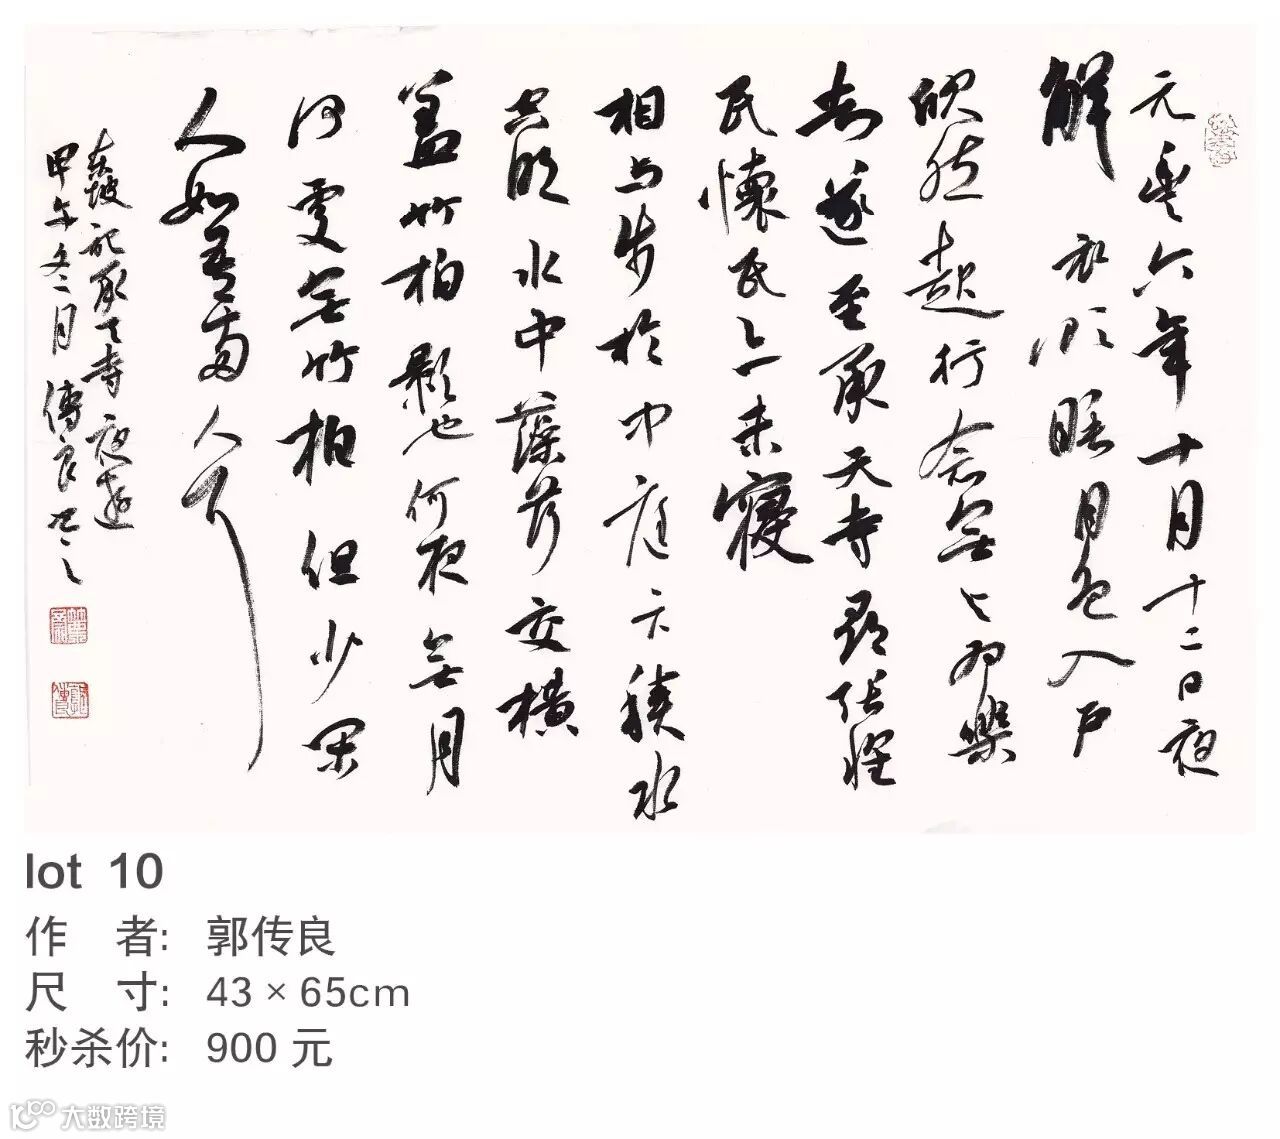 元豐六年十月十二日夜
解衣欲睡月色入户
欣然起行念無与為樂
者遂至承天寺尋張懷
民懷民亦未寢
相与步於中庭下積水
空明水中藻荇交橫
盖竹柏影也何夜無月
何處無竹柏但少閑
人如吾兩人耳
東坡記承天寺夜遊
甲午冬月傳良书之
lot 10
作 者: 郭传良
尺 寸: 43×65cm
秒杀价: 900 元
大数跨境